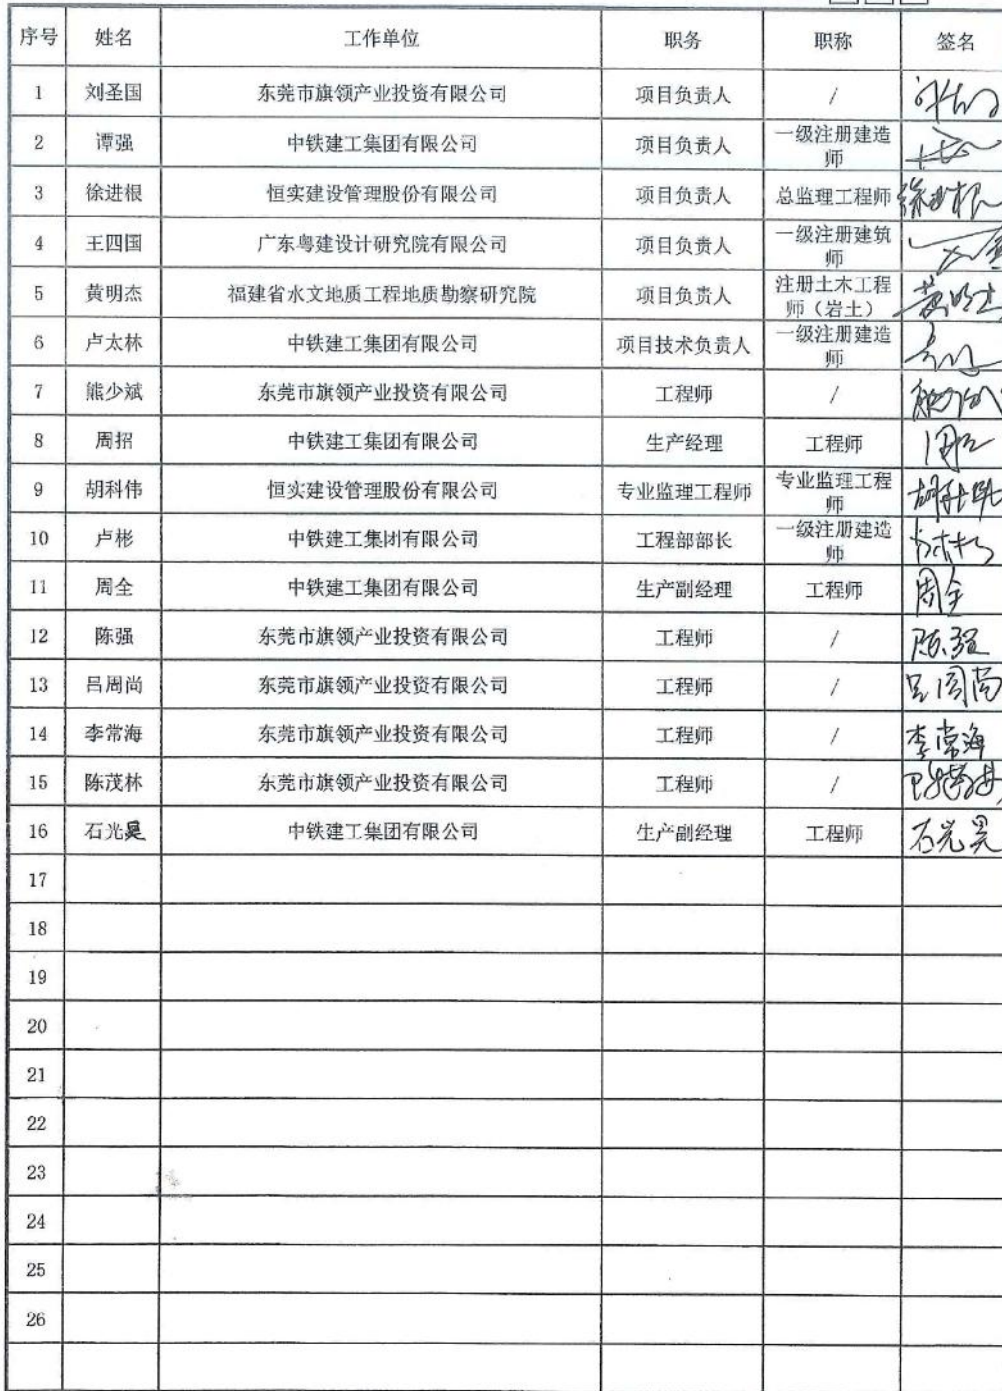 序号 姓名 工作单位 职务 职称 签名
1 刘圣国 东莞市旗领产业投资有限公司 项目负责人 /
2 谭强 中铁建工集团有限公司 项目负责人 一级注册建造师
3 徐进根 恒实建设管理股份有限公司 项目负责人 总监理工程师 徐进根
4 王四国 广东粤建设计研究院有限公司 项目负责人 一级注册建筑师
5 黄明杰 福建省水文地质工程地质勘察研究院 项目负责人 注册土木工程师（岩土） 黄明杰
6 卢太林 中铁建工集团有限公司 项目技术负责人 一级注册建造师
7 熊少斌 东莞市旗领产业投资有限公司 工程师 /
8 周招 中铁建工集团有限公司 生产经理 工程师
9 胡科伟 恒实建设管理股份有限公司 专业监理工程师 专业监理工程师 胡科伟
10 卢彬 中铁建工集团有限公司 工程部部长 一级注册建造师
11 周全 中铁建工集团有限公司 生产副经理 工程师 周全
12 陈强 东莞市旗领产业投资有限公司 工程师 / 陈强
13 吕周尚 东莞市旗领产业投资有限公司 工程师 / 吕周尚
14 李常海 东莞市旗领产业投资有限公司 工程师 / 李常海
15 陈茂林 东莞市旗领产业投资有限公司 工程师 /
16 石光昊 中铁建工集团有限公司 生产副经理 工程师 石光昊
17
18
19
20
21
22
23
24
25
26